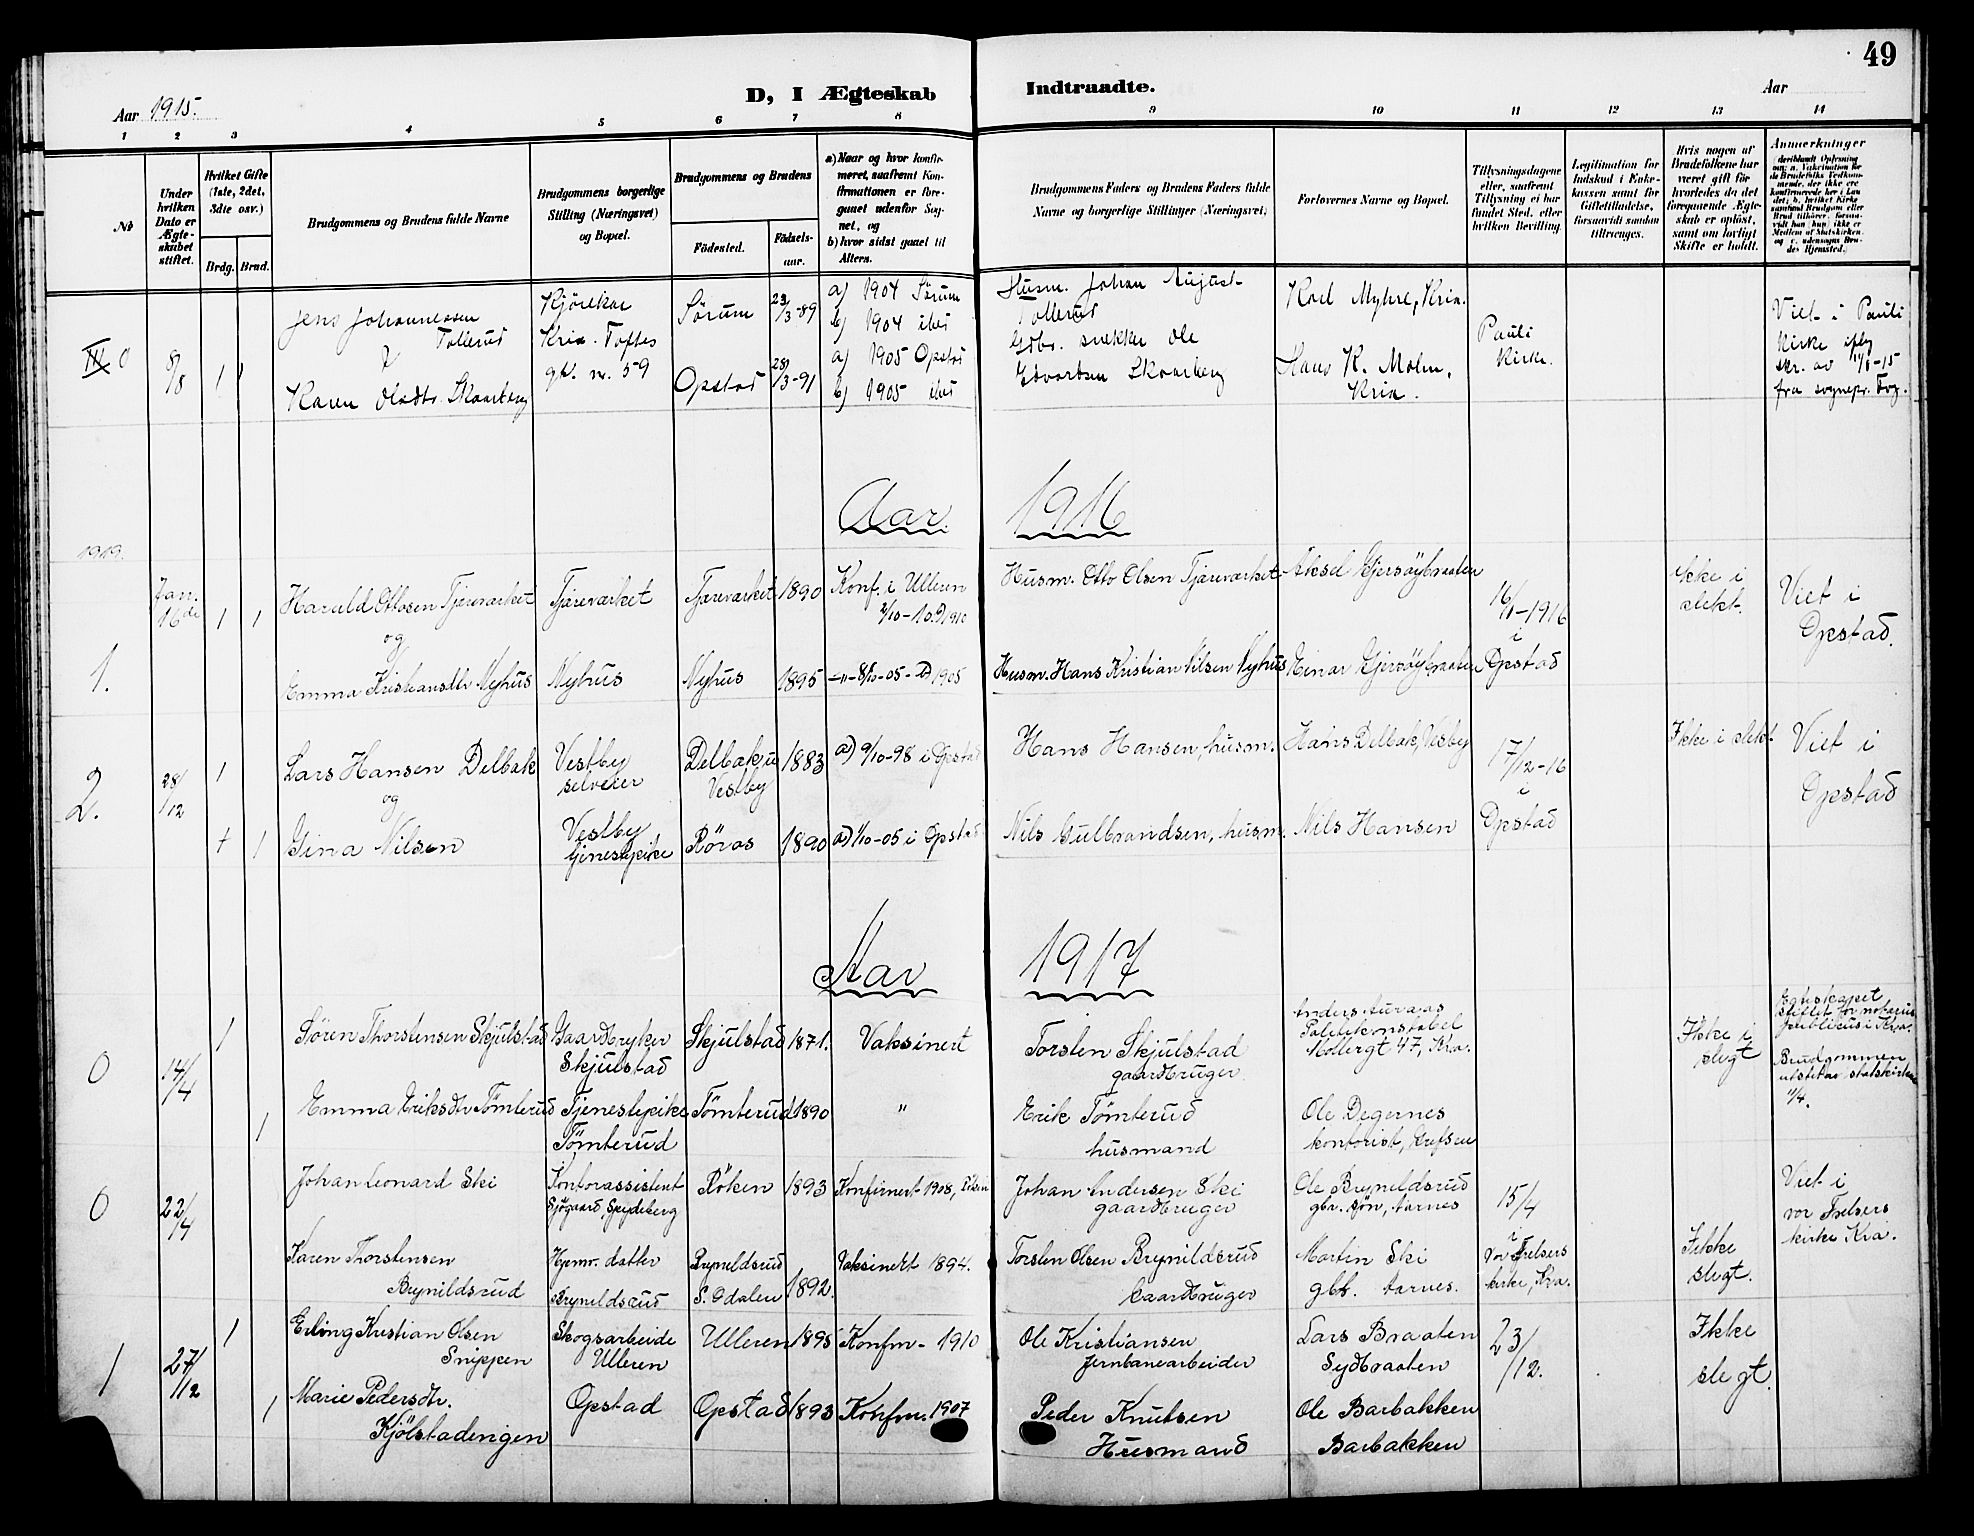 49
D, I Ægteskab Indtraadte.
Aar 1915. Aar
1 2 3 4 5 6 7 8 9 10 11 12 13 14
No
Under hvilken Dato er Ægteskabet stiftet.
Hvilket Gifte (1ste, 2det, 3dte osv.)
Brdg. Brud.
Brudgommens og Brudens fulde Navne
Brudgommens borgerlige Stilling (Næringsvei) og Bopæl.
Brudgommens og Brudens
Födested. Födselsaar.
a) Naar og hvor konfirmeret, saafremt Konfirmationen er foregaaet udenfor Sognet, og
b) hvor sidst gaaet til Alters.
Brudgommens Faders og Brudens Faders fulde Navne og borgerlige Stillinger (Næringsvei)
Forlovernes Navne og Bopæl.
Tillysningsdagene eller, saafremt Tillysning ei har fundet Sted, efter hvilken Bevilling.
Legitimation for Indskud i Enkekassen samt for Giftetilladelse, forsaavidt saadan tiltrænges.
Hvis nogen af Brudefolkene har været gift för hvorledes da det foregaaende Ægteskab er oplöst, samt om lovligt Skifte er holdt.
Anmerkninger
0 8/8 1 1
Jens Johannessen Tollerud
&
Karen Olsdtr. Skaarberg
Kjörekar
Kria. Toftes
gt. nr. 59
Sörum 23/3-89
Opstad 28/3-91
a) 1904 Sörum
b) 1904 ibid
a) 1905 Opstad
b) 1905 ibid
Husm. Johan August Tollerud
Gdbr. snekker Ole Edvartsen Skaarberg
Karl Myhre, Kria.
Hans K. Malm, Kria.
Pauli Kirke.
Viet i Pauli
Kirke iflg
skr. av 11/8-15
fra sognepr. Fog.
Aar 1916
1919.
1. Jan. 16de 1 1
Harald Ottosen Tjæreværket
og
Emma Kristiansdtr Nyhus
Tjæreværket
Nyhus
Tjæreværket 1890
Nyhus 1895
Konf. i Ulleren
2/10-10. b) 1910
-"- 8/10-05- b) 1905
Husm. Otto Olsen Tjæreværket
Husm. Hans Kristian Nilsen Nyhus
Aksel Gjersöybraaten
Einar Gjersöybraaten
16/1-1916
i
Opstad
Ikke i
slekt.
Viet i
Opstad.
2. 28/12 1 1
Lars Hansen Delbak
og
Gina Nilsen
Vestby
selveier
Vestby
tjenestepike
Delbak u Vestby 1883
Röros 1890
a) 9/10-98 i Opstad
a) 1/10-05 i Opstad
Hans Hansen, husm.
Nils Gulbrandsen, husm.
Hans Delbak, Vesby
Nils Hansen
17/12-16
i
Opstad
Ikke i slekt
Viet i
Opstad
Aar 1917
0 14/4 1 1
Sören Thorstensen Skjulstad
Emma Eriksdtr Tömterud
Gaardbryker
Skjulstad
Tjenestepike
Tömterud
Skjulstad 1871.
Tömterud 1890
Vaksinert
"
Torsten Skjulstad
gaardbruger
Erik Tömterud
husmand
Anders Auraaas
Politikonstabel
Mollergt 47, Kra.
Ole Degernes
kontorist, Grefsen
Ikke i
slegt
Egteskapet
stiftet for notarius
publicus i Kra.
Brudgommen
utstitav statskirken
11/4.
0 22/4
Johan Leonard Ski
Karen Thorstensen
Brynildsrud
Kontorassistent
Sjögaard, Spydeberg
Hjemv. datter
Brynildsrud
Röken 1893
Brynildsrud
S. Odalen 1892.
Konfirmert 1908, Röken
Vaksinert 1894.
Johan Andersen Ski
gaardbruger
Torsten Olsen Brynildsrud
Gaardbruger
Ole Brynildsrud
gbr. sön, Aarnes
Martin Ski
gbr. Aarnes.
15/4
i
Vor Frelsers
kirke, Kra.
Ikke
slegt.
Viet i
vor Frelsers
kirke Kra.
1 27/12 1 1
Erling Kristian Olsen
Snippen
Marie Pedersdtr.
Kjölstadengen
Skogsarbeide
Ulleren
Opstad
Ulleren 1895
Opstad 1893
Konfm- 1910
Konfm. 1907
Ole Kristiansen
Jernbanearbeider
Peder Knutsen
Husmand
Lars Braaten
Sydbraaten
Ole Barbakken
Barbakken
23/12.
Ikke
slegt.